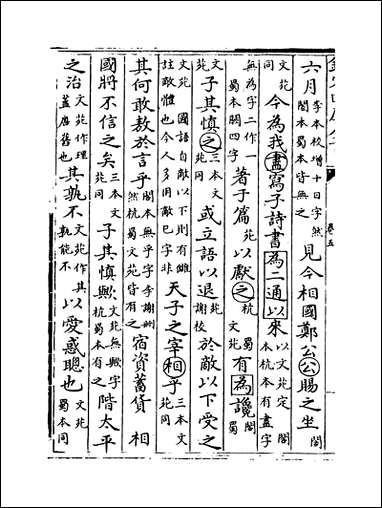 六月李本校增十日字然閣本蜀本皆無之見今相國鄭公公賜之坐閣
文苑同今為我盡寫子詩書為二通以來以文苑定閣本杭本有盡字
無為字二作一蜀本闕四字著于篇苑以獻之杭文苑有為讒閣蜀
文苑子其慎之三本文苑同或立語以退苑謝校於敵以下受之
文苑國語自敵以下則有讎註敵體也今人多用敵已字非天子之宰相乎三本文苑同
其何敢敖於言乎閣本無乎字李謝刊然杭蜀文苑皆有之宿資蓄貨相
國將不信之矣三本文苑同子其慎歟文苑無歟字杭蜀本有之階太平
之治文苑作理蓋唐舊也其孰不文苑作其孰能不以愛惑聰也文苑蜀本同
卷五